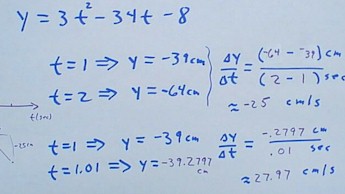 y = 3t² - 34t - 8
t = 1 ⇒ y = -39 cm
t = 2 ⇒ y = -64 cm
Δy/Δt = (-64 - -39) cm / (2 - 1) sec
≈ -25 cm/s
t (sec)
t = 1 ⇒ y = -39 cm
t = 1.01 ⇒ y = -39.2797 cm
Δy/Δt = -.2797 cm / .01 sec
≈ 27.97 cm/s